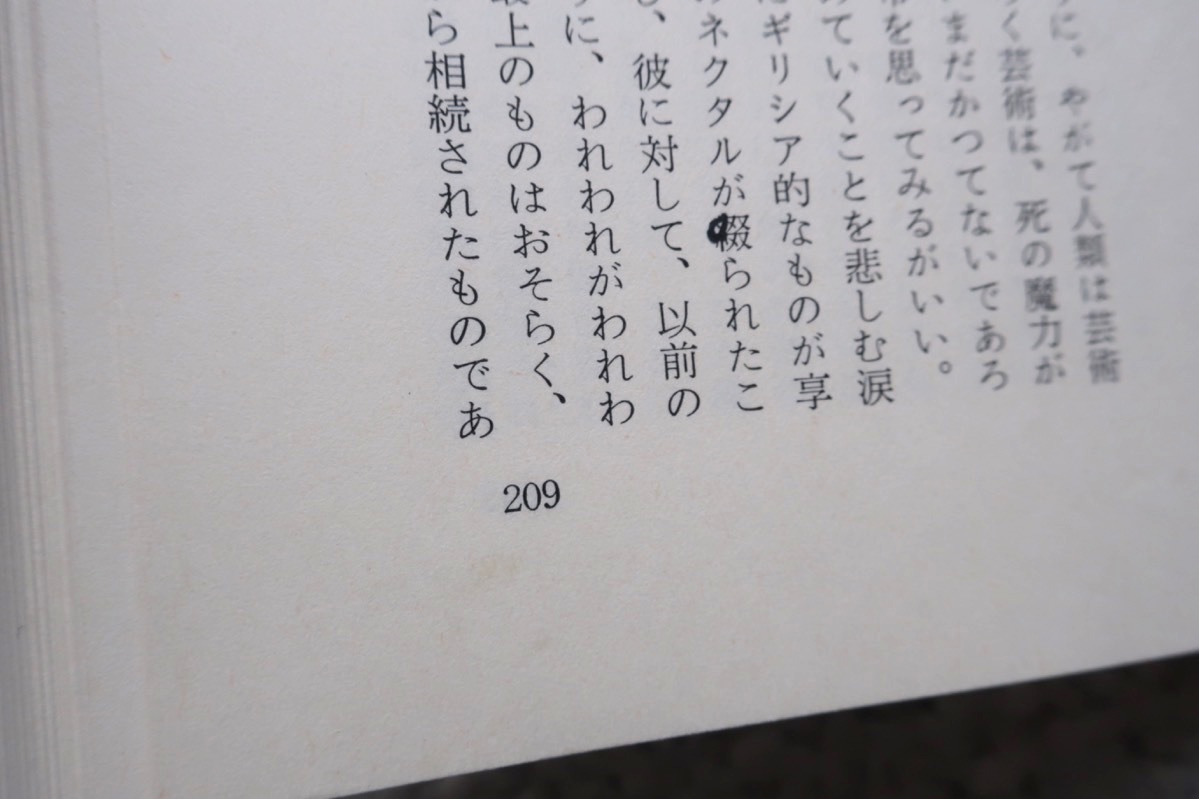 に。やがて人類は芸術
く芸術は、死の魔力が
まだかつてないであろ
を思ってみるがいい。
ていくことを悲しむ涙
ギリシア的なものが享
ネクタルが綴られたこ
、彼に対して、以前の
に、われわれがわれわ
上のものはおそらく、
ら相続されたものであ
209